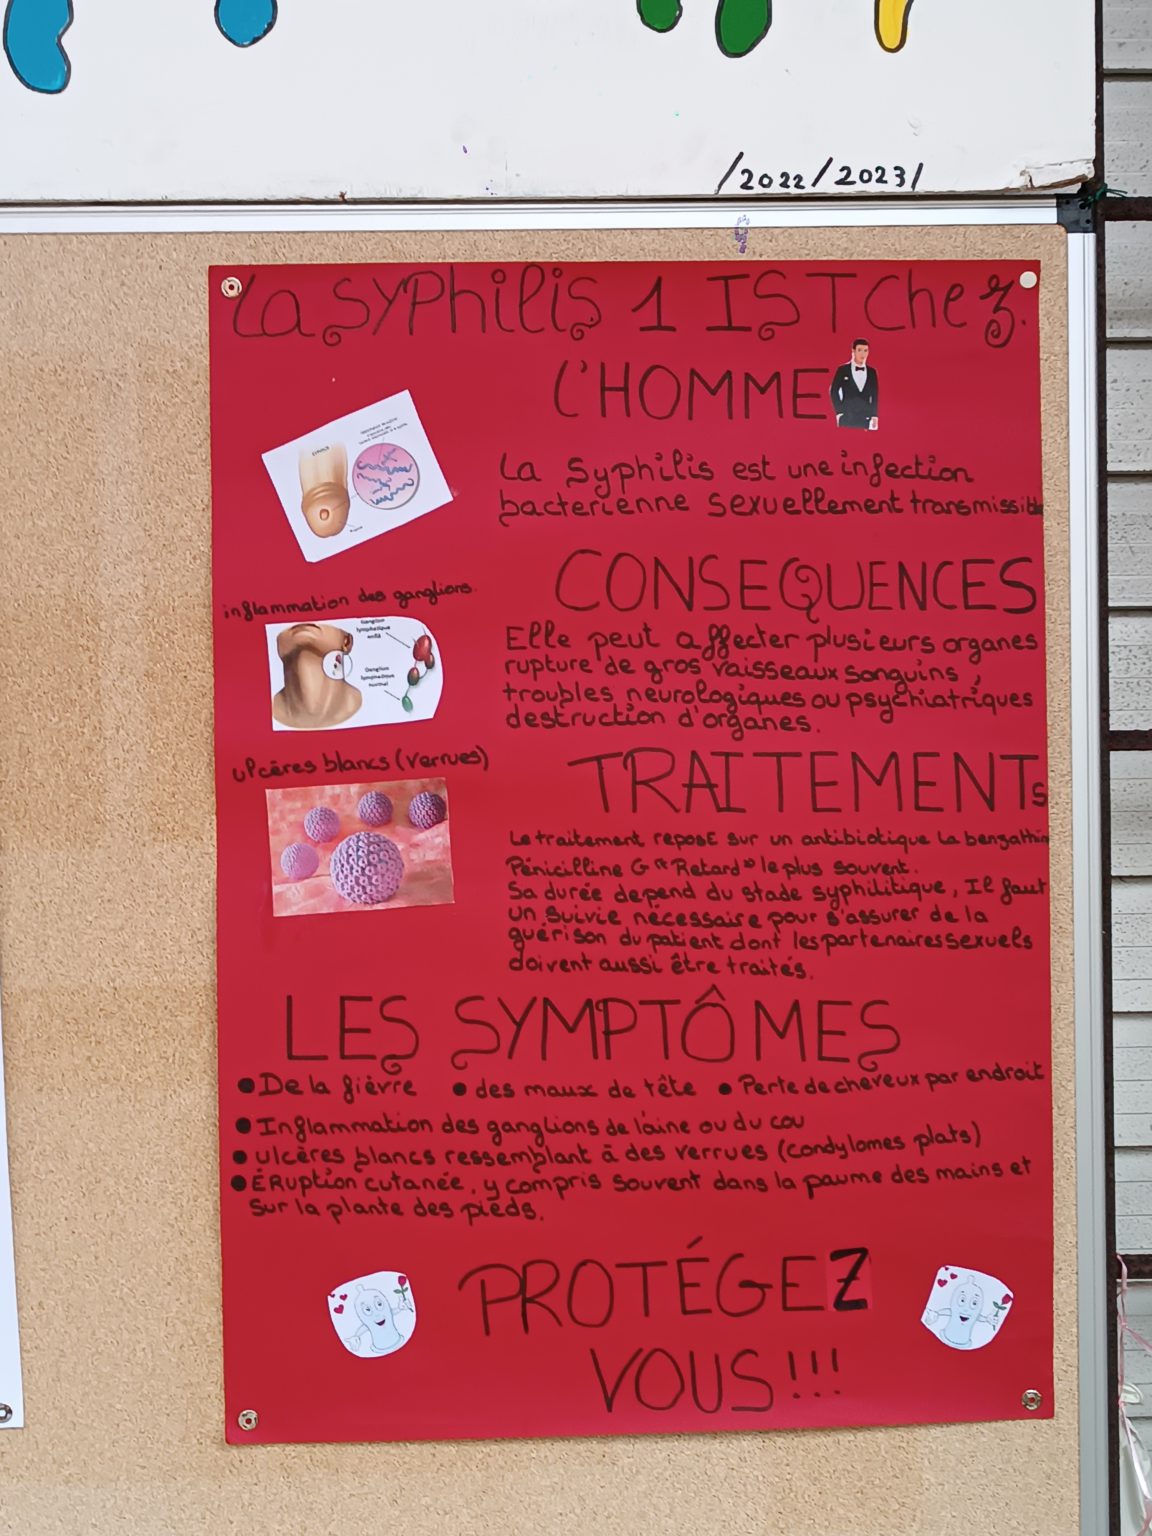 /2022/2023/
La SYPhilis 1 IST Chez
l'HOMME
SYPHILIS
La Syphilis est une infection
bacterienne sexuellement transmissible
inflammation des ganglions.
Ganglion
lymphatique
enflé
Ganglion
lymphatique
normal
ulcères blancs (verrues)
CONSEQUENCES
Elle peut affecter plusieurs organes
rupture de gros vaisseaux sanguins,
troubles neurologiques ou psychiatriques
destruction d'organes.
TRAITEMENTs
Le traitement repose sur un antibiotique la benzathin
Pénicilline G "Retard" le plus souvent.
Sa durée depend du stade syphilitique, Il faut
un suivie necessaire pour s'assurer de la
guérison du patient dont les partenaires sexuels
doivent aussi être traités.
LES SYMPTÔMES
• De la fièvre • des maux de tête • Perte de cheveux par endroit
• Inflammation des ganglions de l'aine ou du cou
• ulcères blancs ressemblant à des verrues (condylomes plats)
• Éruption cutanée, y compris souvent dans la paume des mains et
sur la plante des pieds.
PROTÉGEZ
VOUS!!!